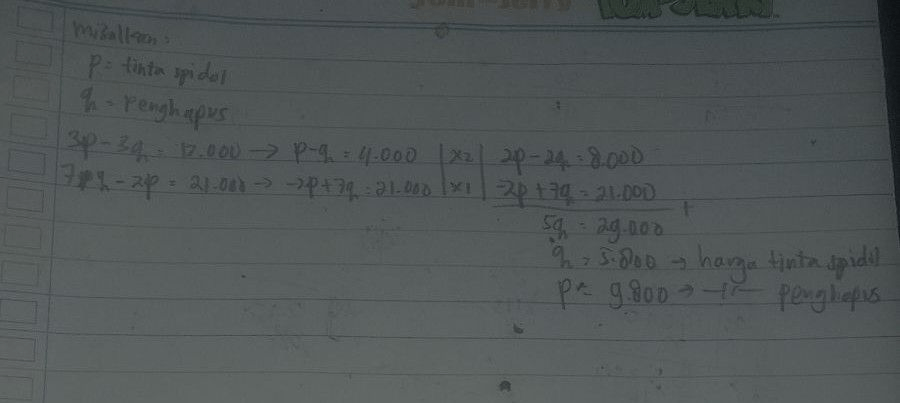 Tom-Jerry TOM-JERRY
misalkan:
p = tinta spidol
q = penghapus
3p - 3q = 12.000 → p - q = 4.000 | x2 | 2p - 2q = 8.000
7q - 2p = 21.000 → -2p + 7q = 21.000 | x1 | -2p + 7q = 21.000 +
5q = 29.000
q = 5.800 → harga tinta spidol
p = 9.800 → —"— penghapus